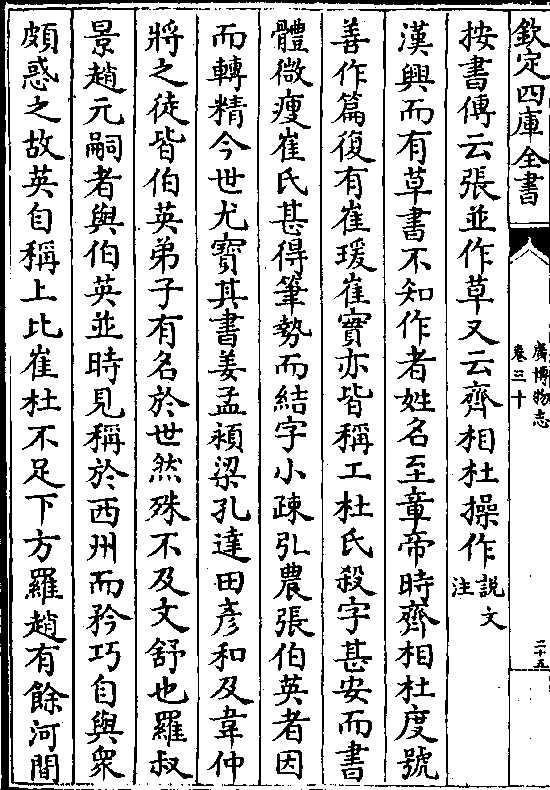 欽定四庫全書
廣博物志
卷三十
二十五
按書傳云張並作草又云齊相杜操作說文注
漢興而有草書不知作者姓名至章帝時齊相杜度號
善作篇復有崔瑗崔寔亦皆稱工杜氏殺字甚安而書
體微瘦崔氏甚得筆勢而結字小疎弘農張伯英者因
而轉精今世尤寶其書姜孟穎梁孔達田彥和及韋仲
將之徒皆伯英弟子有名於世然殊不及文舒也羅叔
景趙元嗣者與伯英並時見稱於西州而矜巧自與衆
頗惑之故英自稱上比崔杜不足下方羅趙有餘河間